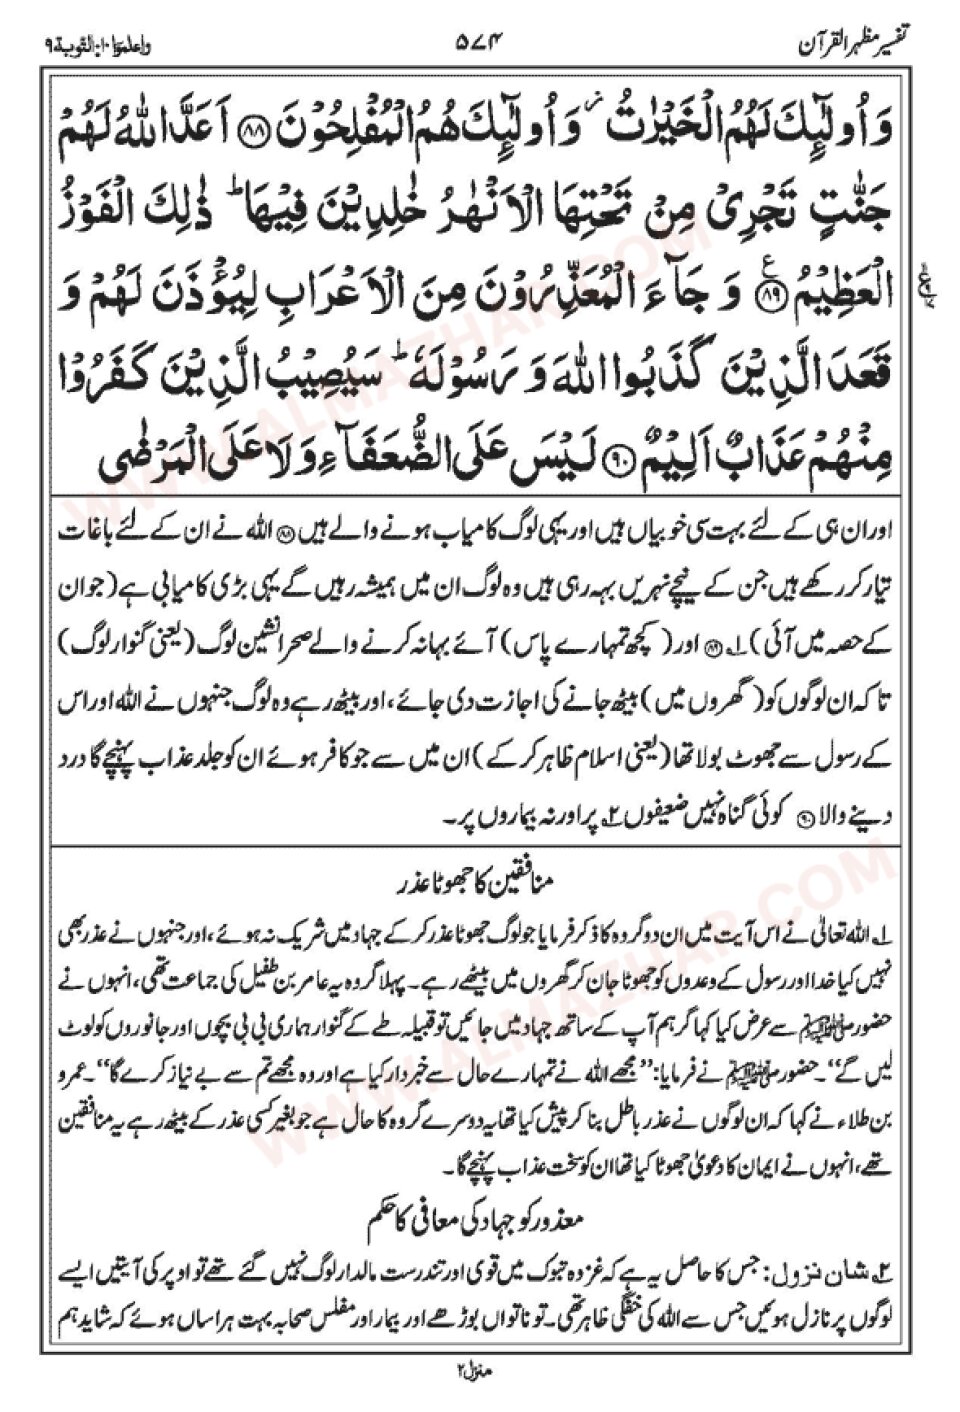 تفسیر مظہر القرآن
۵۷۴
واعلموا ۱۰: التوبۃ ۹
وَاُولٰٓئِكَ لَهُمُ الْخَيْرٰتُ ز وَاُولٰٓئِكَ هُمُ الْمُفْلِحُوْنَ ۝۸۸ اَعَدَّ اللّٰهُ لَهُمْ
جَنّٰتٍ تَجْرِىْ مِنْ تَحْتِهَا الْاَنْهٰرُ خٰلِدِيْنَ فِيْهَا ؕ ذٰلِكَ الْفَوْزُ
الْعَظِيْمُ ۝۸۹ ع وَ جَآءَ الْمُعَذِّرُوْنَ مِنَ الْاَعْرَابِ لِيُؤْذَنَ لَهُمْ وَ
قَعَدَ الَّذِيْنَ كَذَبُوا اللّٰهَ وَ رَسُوْلَهٗ ؕ سَيُصِيْبُ الَّذِيْنَ كَفَرُوْا
مِنْهُمْ عَذَابٌ اَلِيْمٌ ۝۹۰ لَيْسَ عَلَى الضُّعَفَآءِ وَلَا عَلَى الْمَرْضٰى
اور ان ہی کے لئے بہت سی خوبیاں ہیں اور یہی لوگ کامیاب ہونے والے ہیں ۝۸۸ اللہ نے ان کے لئے باغات
تیار کر رکھے ہیں جن کے نیچے نہریں بہہ رہی ہیں وہ لوگ ان میں ہمیشہ رہیں گے یہی بڑی کامیابی ہے (جو ان
کے حصہ میں آئی) ۱؎ ۝۸۹ اور (کچھ تمہارے پاس) آئے بہانہ کرنے والے صحرا نشین لوگ (یعنی گنوار لوگ)
تاکہ ان لوگوں کو (گھروں میں) بیٹھ جانے کی اجازت دی جائے، اور بیٹھ رہے وہ لوگ جنہوں نے اللہ اور اس
کے رسول سے جھوٹ بولا تھا (یعنی اسلام ظاہر کر کے) ان میں سے جو کافر ہوئے ان کو جلد عذاب پہنچے گا درد
دینے والا ۝۹۰ کوئی گناہ نہیں ضعیفوں ۲؎ پر اور نہ بیماروں پر۔
منافقین کا جھوٹا عذر
۱؎ اللہ تعالیٰ نے اس آیت میں ان دو گروہ کا ذکر فرمایا جو لوگ جھوٹا عذر کر کے جہاد میں شریک نہ ہوئے، اور جنہوں نے عذر بھی
نہیں کیا خدا اور رسول کے وعدوں کو جھوٹا جان کر گھروں میں بیٹھے رہے۔ پہلا گروہ یہ عامر بن طفیل کی جماعت تھی، انہوں نے
حضور ﷺ سے عرض کیا کہا گر ہم آپ کے ساتھ جہاد میں جائیں تو قبیلہ طے کے گنوار ہماری بی بی بچوں اور جانوروں کو لوٹ
لیں گے"۔ حضور ﷺ نے فرمایا: "مجھے اللہ نے تمہارے حال سے خبردار کیا ہے اور وہ مجھے تم سے بے نیاز کرے گا"۔ عمرو
بن طلاء نے کہا کہ ان لوگوں نے عذر باطل بنا کر پیش کیا تھا یہ دوسرے گروہ کا حال ہے جو بغیر کسی عذر کے بیٹھ رہے یہ منافقین
تھے، انہوں نے ایمان کا دعویٰ جھوٹا کیا تھا ان کو سخت عذاب پہنچے گا۔
معذور کو جہاد کی معافی کا حکم
۲؎ شان نزول: جس کا حاصل یہ ہے کہ غزوہ تبوک میں قوی اور تندرست مالدار لوگ نہیں گئے تھے تو اوپر کی آیتیں ایسے
لوگوں پر نازل ہوئیں جس سے اللہ کی خفگی ظاہر تھی۔ تو ناتواں بوڑھے اور بیمار اور مفلس صحابہ بہت ہراساں ہوئے کہ شاید ہم
منزل ۲
WWW.ALMAZHAR.COM
WWW.ALMAZHAR.COM